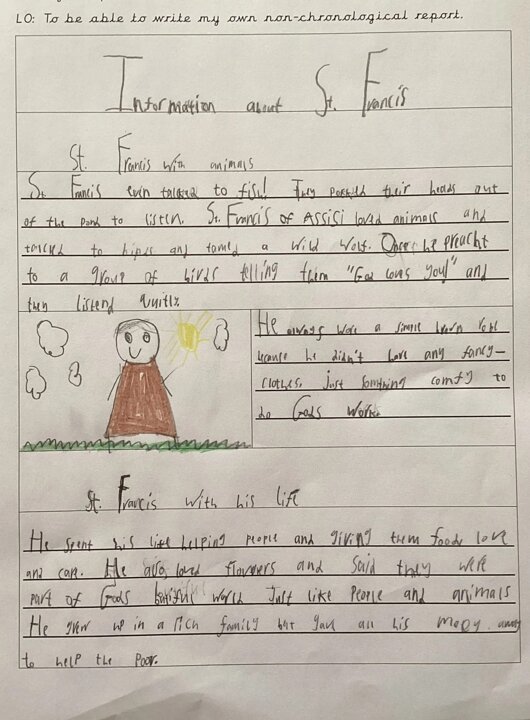 LO: To be able to write my own non-chronological report.
Information about St. Francis
St. Francis with animals
St. Francis even talked to fish! They their heads out
of the pond to listen. St. Francis of Assisi loved animals and
talked to and tamed a wild wolf. Once he preacht
to a group of birds telling them "God loves you!" and
they listend quitly.
He always wore a simple brown robe
because he didn't have any fancy-
clothes. Just somthing comfy to
do Gods work.
St. Francis with his life
He spent his life helping people and giving them foode love
and care. He also loved flowers and said they were
part of Gods world Just like People and animals
He grew up in a rich family but gave all his mony away
to help the Poor.